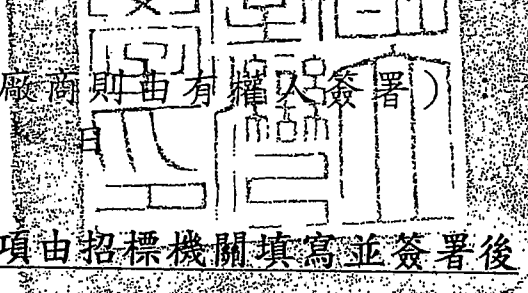 廠商則由有權人簽署）
日
項由招標機關填寫並簽署後